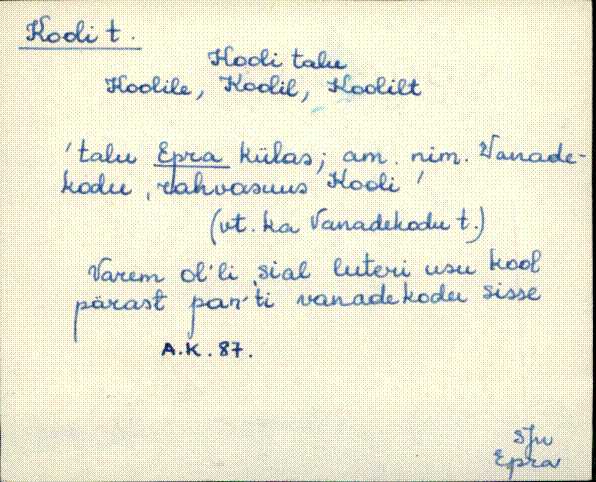 Kooli t.
Kooli talu
Koolile, Koolil, Koolilt
'talu Epra külas; am. nim. Vanade-
kodu, rahvasuus Kooli'
(vt. ka Vanadekodu t.)
Varem ol'li sial luteri usu kool
pärast pan'ti vanadekodu sisse
A.K. 87.
SJn
Epra